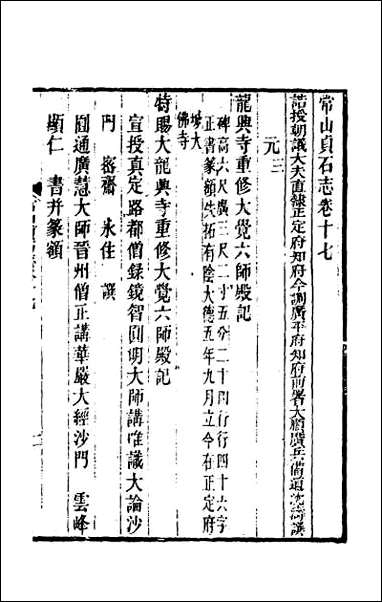 常山貞石志卷十七
誥授朝議大夫直隸正定府知府今調廣平府知府前署大順廣兵備道沈濤譔
元三
龍興寺重修大覺六師殿記
碑高六尺廣三尺二寸五分二十四行行四十六字
正書篆額失拓有陰大德五年九月立今在正定府
城大
佛寺
特賜大龍興寺重修大覺六師殿記
宣授真定路都僧錄鏡智圓明大師講唯識大論沙
門　密齋　永住　譔
圓通廣慧大師晉州僧正講華嚴大經沙門　雲峰
顯仁　書并篆額